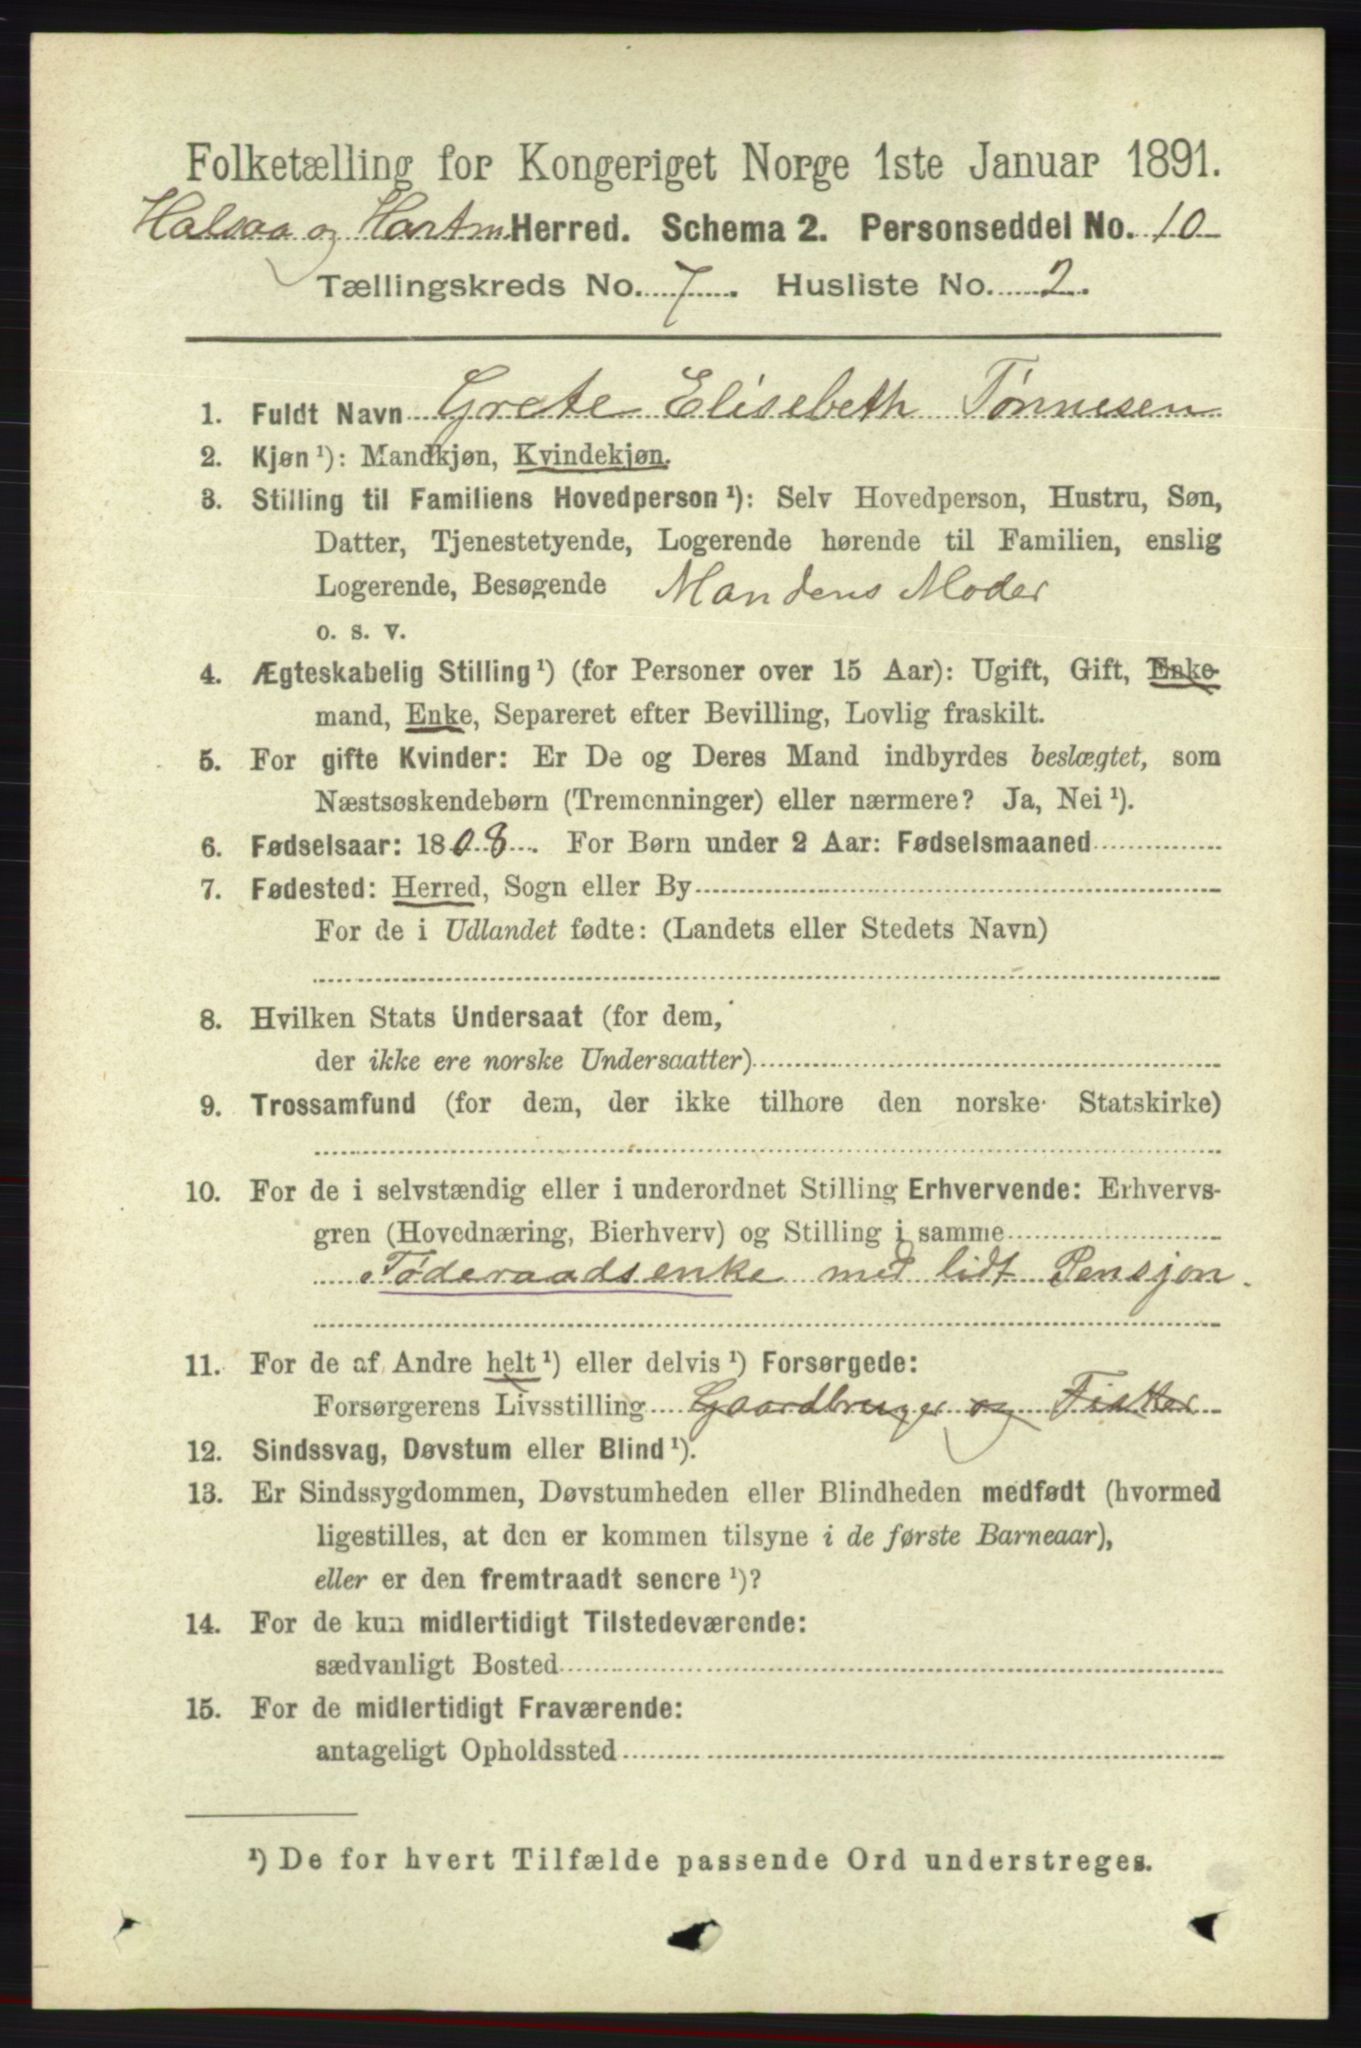 Folketælling for Kongeriget Norge 1ste Januar 1891.
Halsaa og Hartm Herred. Schema 2. Personseddel No. 10
Tællingskreds No. 7. Husliste No. 2.
1. Fuldt Navn Grete Elisebeth Tønnesen
2. Kjøn ¹): Mandkjøn, Kvindekjøn.
3. Stilling til Familiens Hovedperson ¹): Selv Hovedperson, Hustru, Søn,
Datter, Tjenestetyende, Logerende hørende til Familien, enslig
Logerende, Besøgende Mandens Moder
o. s. v.
4. Ægteskabelig Stilling ¹) (for Personer over 15 Aar): Ugift, Gift, Enke-
mand, Enke, Separeret efter Bevilling, Lovlig fraskilt.
5. For gifte Kvinder: Er De og Deres Mand indbyrdes beslægtet, som
Næstsøskendebørn (Tremenninger) eller nærmere? Ja, Nei ¹).
6. Fødselsaar: 1808. For Børn under 2 Aar: Fødselsmaaned
7. Fødested: Herred, Sogn eller By
For de i Udlandet fødte: (Landets eller Stedets Navn)
8. Hvilken Stats Undersaat (for dem,
der ikke ere norske Undersaatter)
9. Trossamfund (for dem, der ikke tilhøre den norske Statskirke)
10. For de i selvstændig eller i underordnet Stilling Erhvervende: Erhvervs-
gren (Hovednæring, Bierhverv) og Stilling i samme
Føderaadsenke med lidt Pensjon.
11. For de af Andre helt ¹) eller delvis ¹) Forsørgede:
Forsørgerens Livsstilling Gaardbruger og Fisker
12. Sindssvag, Døvstum eller Blind ¹).
13. Er Sindssygdommen, Døvstumheden eller Blindheden medfødt (hvormed
ligestilles, at den er kommen tilsyne i de første Barneaar),
eller er den fremtraadt senere ¹)?
14. For de kun midlertidigt Tilstedeværende:
sædvanligt Bosted
15. For de midlertidigt Fraværende:
antageligt Opholdssted
¹) De for hvert Tilfælde passende Ord understreges.